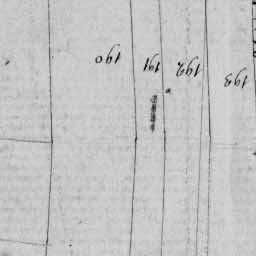 190
191
192
193